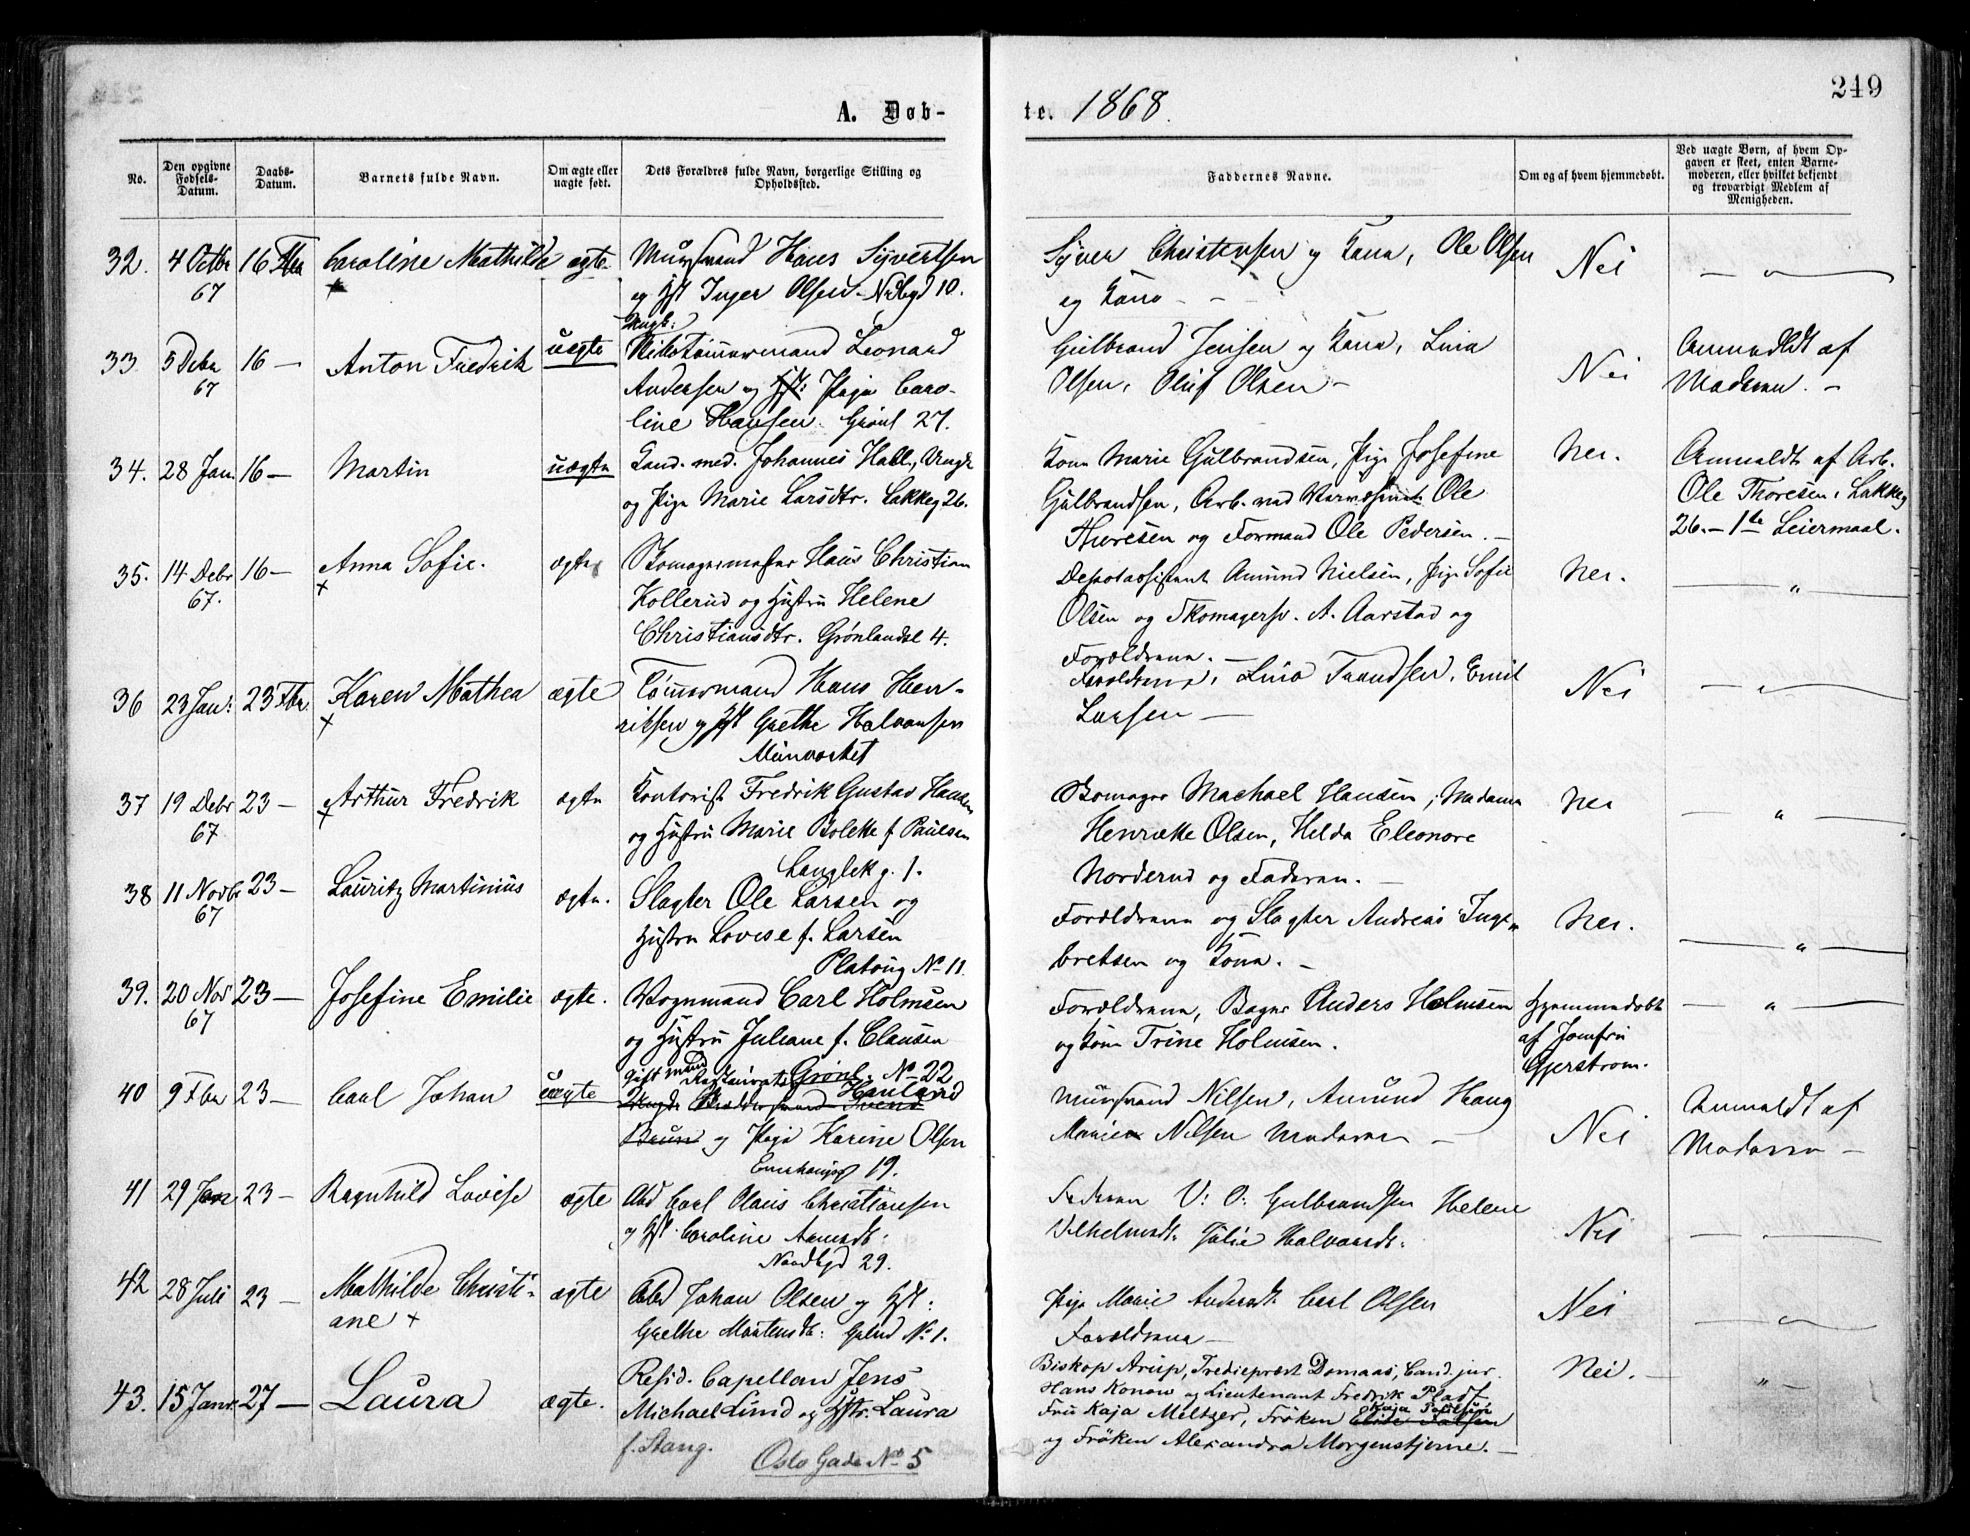 249
A. Døb-
te. 1868.
No.
Den opgivne Fødsels-Datum.
Daabs-Datum.
Barnets fulde Navn.
Om ægte eller uægte født.
Dets Forældres fulde Navn, borgerlige Stilling og Opholdssted.
Faddernes Navne.
Om og af hvem hjemmedøbt.
Ved uægte Børn, af hvem Opgaven er skeet, enten Barnemoderen, eller hvilket bekjendt og troværdigt Medlem af Menigheden.
32. 4 Octbr 67 16 Fbr Caroline Mathilde ægte
Hans Syvertsen
og Hst Inger Olsen. 10.
Syver Christensen og Kone, Ole Olsen
og Kone
Nei
33 5 Debr 67 16 — Anton Fredrik uægte
Ungk:
Tømmermand Leonard
Andersen og Pige Caro-
line Hansen. Grønl 27.
Gulbrand Jensen og Kone, Lina
Olsen, Oluf Olsen —
Nei
Anmeldt af
Moderen. —
34. 28 Jan. 16 — Martin uægte
Cand. med. Johannes Hall, Ungk
og Pige Marie Larsdtr. Lakkeg 26.
Kone Marie Gulbrandsen, Pige Josefine
Gulbrandsen, Arb. ved Ole
Thoresen og Formand Ole Pedersen. —
Nei.
Anmeldt af Arb.
Ole Thoresen, Lakkeg
26. — 1ste Leiermaal.
35. 14 Debr 67. 16 — Anna Sofie. ægte
Skomagermester Hans Christian
Kollerud og Hustru Helene
Christiansdtr. Grønlandsl 4.
Depotassistent Amund Nielsen, Pige Sofie
Olsen og Skomagersv. A. Aarstad og
Forældrene. —
Nei.
36 23 Jan: 23 Fbr. Karen Mathea ægte
Tømmermand Hans Hen-
riksen og Hst Grethe Halvorsen
Forældrene, Lina Emil
Larsen —
Nei
37 19 Debr 67 23 — Arthur Fredrik ægte
Kontorist Fredrik Gustav Hansen
og Hustru Marie Bolette f. Paulsen
Langlek g. 1.
Skomager Machael Hansen, Madame
Henriette Olsen, Helda Eleonore
Norderud og Faderen. —
Nei
38 11 Novbr 67 23 — Lauritz Martinius ægte.
Slagter Ole Larsen og
Hustru Lovise f. Larsen
Platoug No 11.
Forældrene og Slagter Andreas Inge-
bretsen og Kone. —
Nei.
39. 20 Nov 67 23 — Josefine Emilie ægte.
Vognmand Carl Holmsen
og Hustru Juliane f. Clausen
Grønl. No 22
Forældrene, Bager Anders Holmsen
og Kone Trine Holmsen.
Hjemmedøbt
af Jomfru
Gjerstrøm.
40 9 Fbr 23 — Carl Johan uægte
Gift mand
Brun og Pige Karine Olsen
19.
Nilsen, Amund Haug
Marie Nilsen Moderen —
Nei
Anmeldt af
Moderen —
41 29 Jan 23 — Ragnhild Lovise ægte
Abd Carl Olaus Christiansen
og Hst. Caroline
Nordbyd 29.
Faderen V: O: Gulbrandsen Helene
Vilhelmsdt. Julie Halvorsdt.
Nei
42 28 Juli 23 — Mathilde Christi-
ane ægte
Abd Johan Olsen og Hst:
Grethe Mortensdt: No 1.
Pige Marie Andersdt. Carl Olsen
Forældrene —
Nei
43. 15 Janr. 27 — Laura ægte.
Resid. Capellan Jens
Michael Lund og Hstr. Laura
f. Stang. Oslo Gade No 5
Biskop Arup, Tredieprest Domaas, Cand. jur.
Hans Konow og Lieutenant Fredrik Pladt
Fru Kaja Meltzer, Frøken Elise Falsen
og Frøken Alexandra Morgenstjerne. —
Nei.